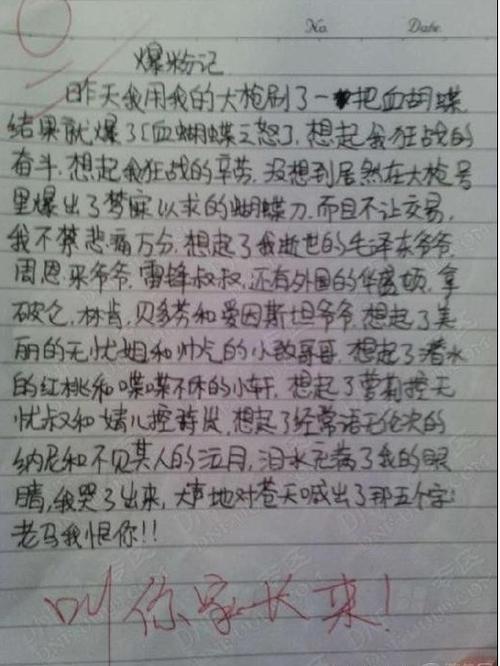 No.
Date.
爆粉记
昨天我用我的大枪刷了一把血蝴蝶
结果就爆了[血蝴蝶之怒],想起我狂战的
奋斗,想起我狂战的辛劳,没想到居然在大枪号
里爆出了梦寐以求的蝴蝶刀,而且不让交易,
我不禁悲痛万分,想起了我逝世的毛泽东爷爷,
周恩来爷爷,雷锋叔叔,还有外国的华盛顿,拿
破仑,林肯,贝多芬和爱因斯坦爷爷,想起了美
丽的无忧姐和帅气的小败哥哥,想起了潜水
的红桃和喋喋不休的小轩,想起了萝莉控无
忧叔和婧儿控,想起了经常语无伦次的
纳尼和不见其人的泣月,泪水充满了我的眼
睛,我哭了出来,大声地对苍天喊出了那五个字:
老马我恨你!!
叫你家长来!